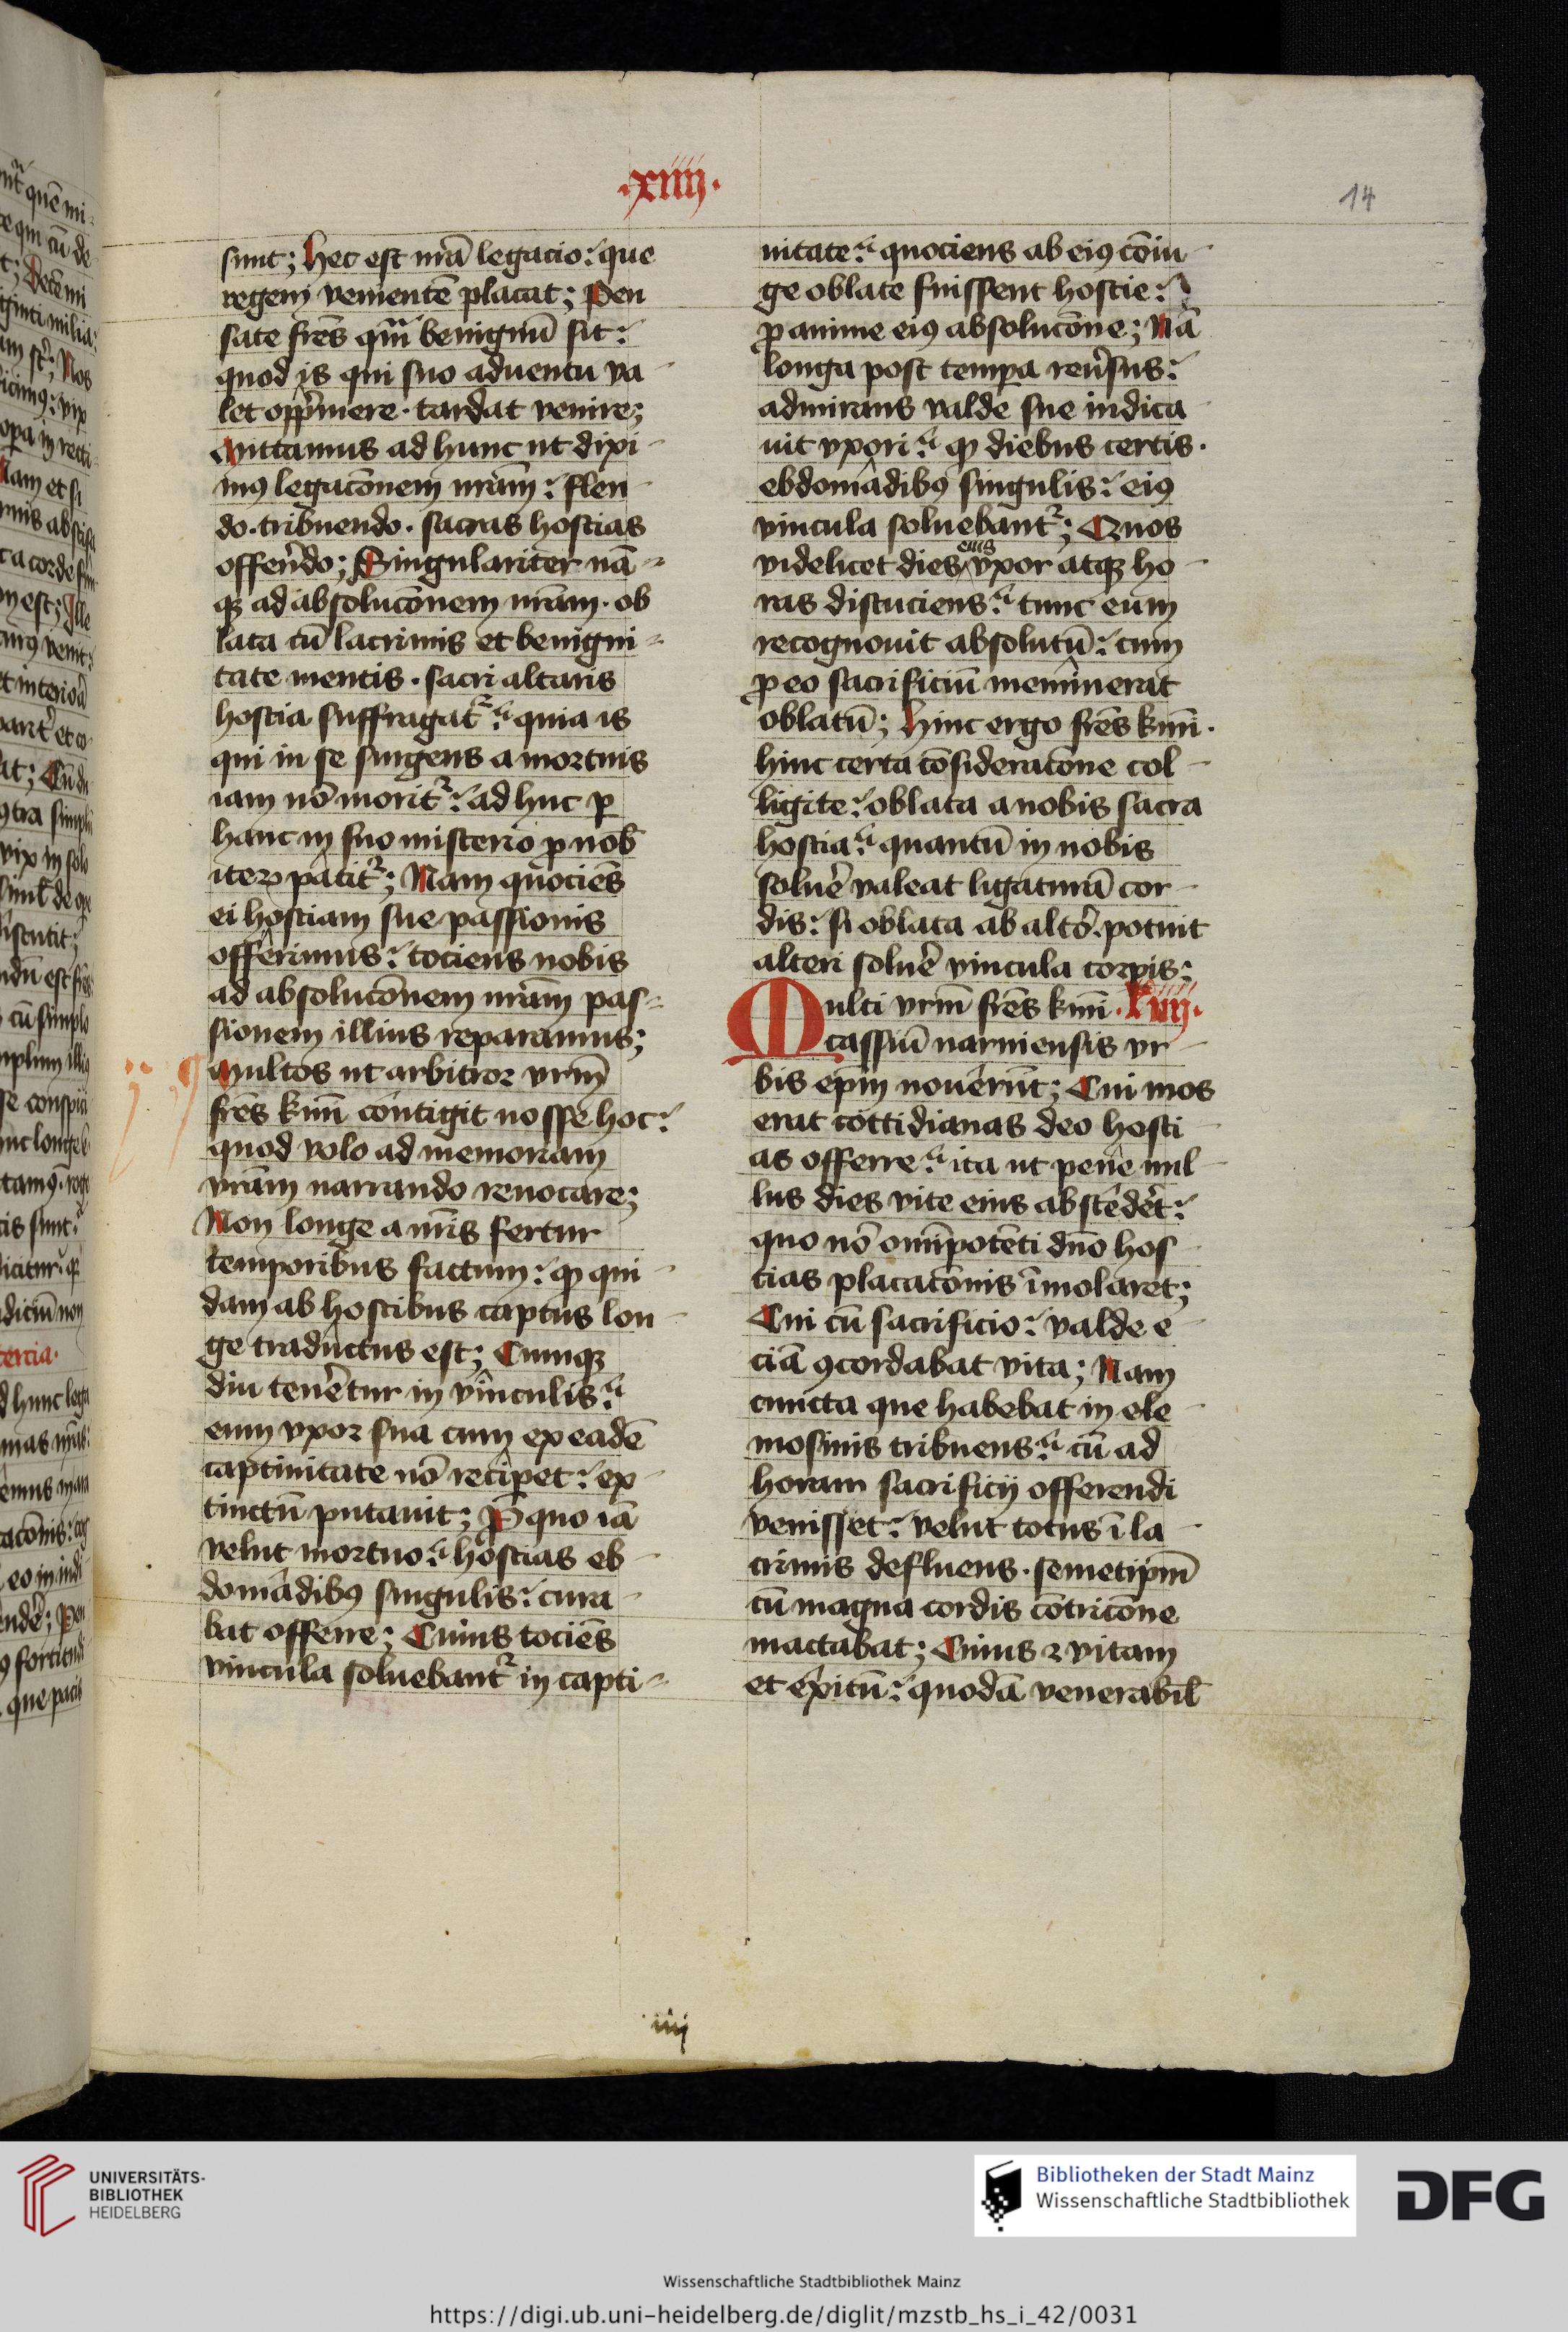 .xiiij.
14
sunt; Hec est nr̄a legacio: que
regem venientē placat; Pen
sate fr̄es qm̄ benignū sit:
quod is qui suo aduentu va-
let opp̄mere. tardat venire;
Mittamus ad hunc ut dixi-
mꝰ legacōnem nr̄am: flen-
do. tribuendo. sacras hostias
offerēdo; Singulariter nā-
qꝫ ad absolucōnem nr̄am. ob
lata cū lacrimis et benigni-
tate mentis. sacri altaris
hostia suffragat᷑: quia is
qui in se surgens a mortuis
iam nō morit᷑: ad huc ꝑ
hanc in suo misterio ꝓ nob̄
iteꝝ patit᷑; Nam quociēs
ei hostiam sue passionis
offerimus: tociens nobis
ad absolucōnem nr̄am pas-
sionem illius reparamus;
Multos ut arbitror vr̄m
fr̄es km̄i contigit nosse hoc:
quod volo ad memoriam
vr̄am narrando reuocare;
Non longe a nr̄is fertur
temporibus factum: ꝙ qui-
dam ab hostibus captus lon-
ge traductus est; Cumqꝫ
diu tenēetur in vinculis:
eum vxor sua cum ex eadē
captiuitate nō recip̄et: ex-
tinctū putauit; P̄ quo iā
velut mortuo: hostias eb-
domadibꝰ singulis: cura-
bat offerre; Cuius tociēs
vincula soluebant᷑ in capti-
uitate: quociens ab eiꝰ cōiu-
ge oblate fuissent hostie:
ꝓ anime eiꝰ absolucōne; Nā
longa post temꝑa reuersus:
admirans valde sue indica-
uit vxori: ꝙ diebus certis.
ebdomadibꝰ singulis: eiꝰ
vincula soluebant᷑; Quos
videlicet dies eius vxor atqꝫ ho-
ras discuciens: tunc eum
recognouit absolutū: cum
ꝓ eo sacrificiū meminerat
oblatū; Hinc ergo fr̄es km̄i.
hinc certa cōsideracōne col-
ligite: oblata a nobis sacra
hostia: quantū in nobis
soluere valeat ligaturā cor-
dis: si oblata ab alt̄o. potuit
alteri soluere vincula corꝑis;
Multi vr̄m fr̄es km̄i. lviij.
cassiū narniensis vr-
bis ep̄m nouerūt; Cui mos
erat cottidianas deo hosti-
as offerre: ita ut pene nul-
lus dies vite eius abscēderet:
quo nō om̄ipotēti dn̄o hos-
tias placacōnis īmolaret;
Cui cū sacrificio: valde e-
ciā ꝯcordabat vita; Nam
cuncta que habebat in ele-
mosinis tribuens: cū ad
horam sacrificij offerendi
venisset: velut totus ī la-
crimis defluens. semetipm̄
cū magna cordis cōtricōne
mactabat; Cuius ꝛ vitam
et exitū: quodā venerabil̄
iiij
UNIVERSITÄTS-
BIBLIOTHEK
HEIDELBERG
Bibliotheken der Stadt Mainz
Wissenschaftliche Stadtbibliothek
DFG
Wissenschaftliche Stadtbibliothek Mainz
https://digi.ub.uni-heidelberg.de/diglit/mzstb_hs_i_42/0031